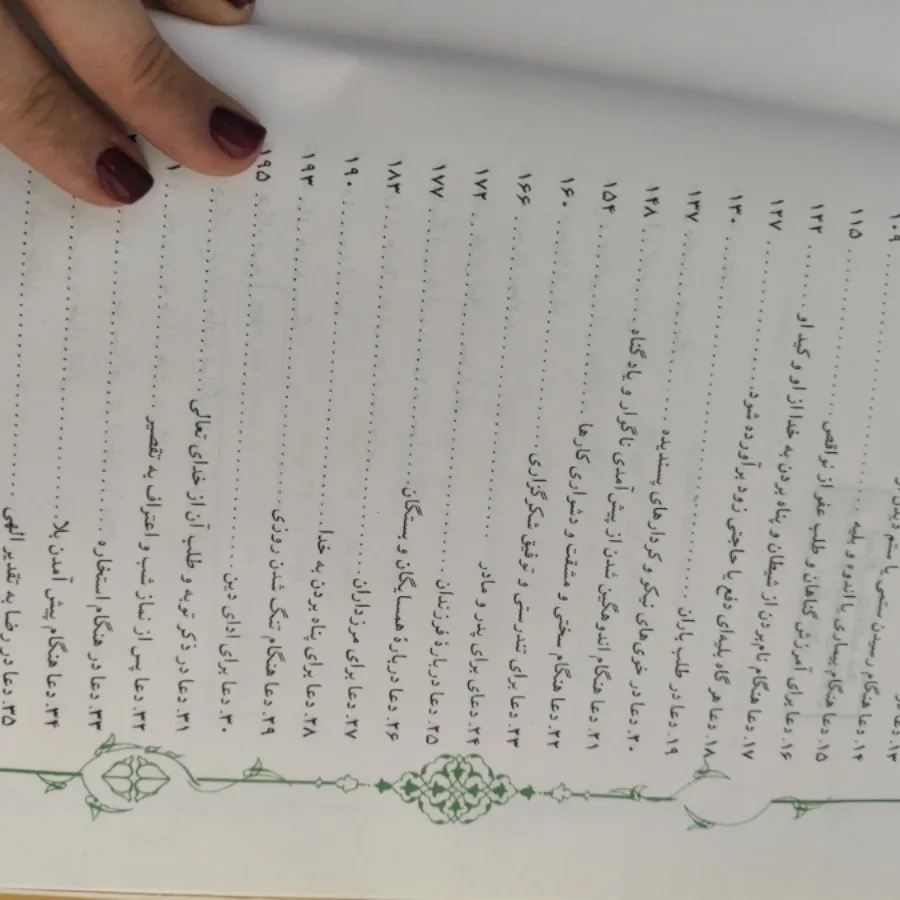 ۱۳. دعا در
۱۴. دعا هنگام رسیدن ستمی یا ستم دیدن از
۱۵. دعا هنگام بیماری یا اندوه و بلیه ........ ۱۰۹
۱۶. دعا برای آمرزش گناهان و طلب عفو از نواقص ........ ۱۱۵
۱۷. دعا هنگام نام‌بردن از شیطان و پناه بردن به خدا از او و کید او ........ ۱۲۲
۱۸. دعا هر گاه بلیه‌ای دفع یا حاجتی زود برآورده شود ........ ۱۲۷
۱۹. دعا در طلب باران ........ ۱۳۰
۲۰. دعا در خوی‌های نیکو و کردارهای پسندیده ........ ۱۳۷
۲۱. دعا هنگام اندوهگین شدن از پیش‌آمدی ناگوار و یاد گناه ........ ۱۴۸
۲۲. دعا هنگام سختی و مشقت و دشواری کارها ........ ۱۵۴
۲۳. دعا برای تندرستی و توفیق شکرگزاری ........ ۱۶۰
۲۴. دعای برای پدر و مادر ........ ۱۶۶
۲۵. دعا دربارهٔ فرزندان ........ ۱۷۲
۲۶. دعا دربارهٔ همسایگان و بستگان ........ ۱۷۷
۲۷. دعا برای مرزداران ........ ۱۸۳
۲۸. دعا برای پناه بردن به خدا ........ ۱۹۰
۲۹. دعا هنگام تنگ شدن روزی ........ ۱۹۳
۳۰. دعا برای ادای دین ........ ۱۹۵
۳۱. دعا در ذکر توبه و طلب آن از خدای تعالی ........
۳۲. دعا پس از نماز شب و اعتراف به تقصیر ........
۳۳. دعا در هنگام استخاره ........
۳۴. دعا هنگام پیش آمدن بلا ........
۳۵. دعا در رضا به تقدیر الهی ........